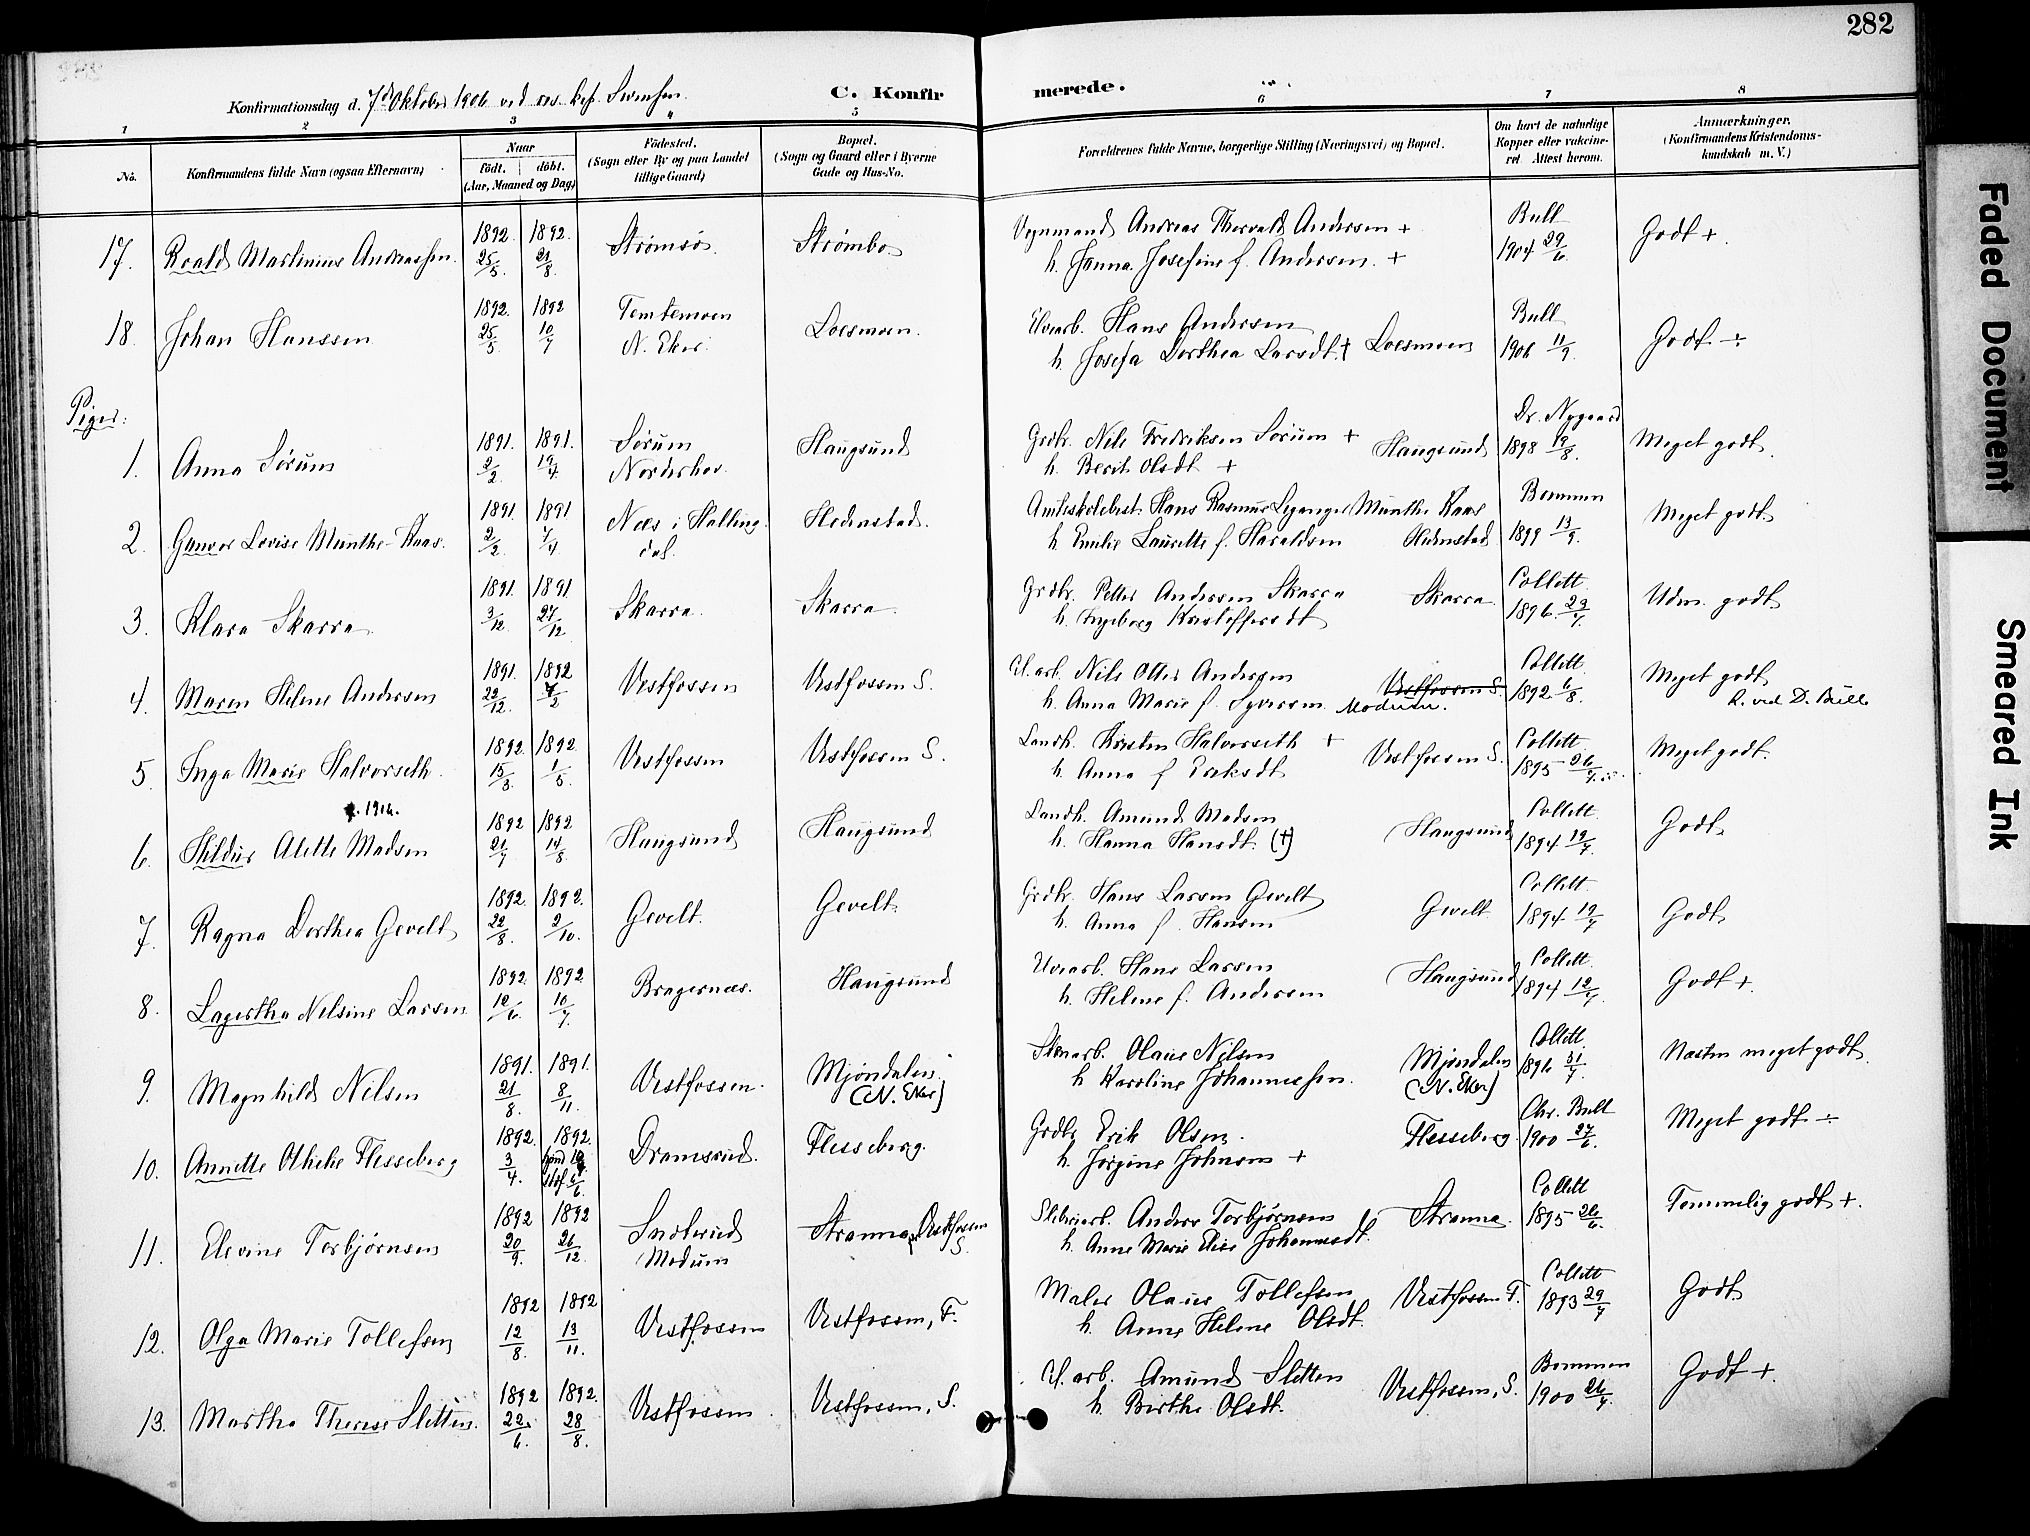 282
Konfirmationsdag d. 7de Oktober 1906 ved res. kap. Svensen.
C. Konfirmerede.
1 2 3 4 5 6 7 8
No.
Konfirmandens fulde Navn (ogsaa Efternavn)
Naar
födt. döbt.
(Aar, Maaned og Dag)
Födested.
(Sogn eller By og paa Landet
tillige Gaard)
Bopæl.
(Sogn og Gaard eller i Byerne
Gade og Hus-No.
Forældrenes fulde Navne, borgerlige Stilling (Næringsvei) og Bopæl.
Om havt de naturlige
Kopper eller vakcine-
ret. Attest herom.
Anmærkninger.
(Konfirmandens Kristendoms-
kundskab m. V.)
17. Roald Martinius Andreassen. 1892. 25/5. 1892. 21/8. Strømsø. Strømbo
Vognmand Andreas Thorvald Andersen +
h. Janna Josefine f. Andersen. +
Bull 1904 29/6. Godt +.
18. Johan Hanssen 1892. 25/5 1892 10/7 Temtemoen N. Eker. Loesmoen.
Elvearb. Hans Andersen
h. Josefa Dorthea Larsdt. † Loesmoen
Bull 1906 11/9. Godt ÷
Piger:
1. Anna Sörum 1891. 2/2. 1891. 19/4. Sörum Norderhov. Haugsund
Grdbr. Nils Fredriksen Sörum +
h. Berit Olsdt + Haugsund
Dr. Nygaard 1898 19/8. Meget godt.
2. Gunvor Lovise Munthe-Kaas. 1891. 2/2. 1891 7/4. Næs i Halling dal. Hedenstad.
Amtsskolebest. Hans Rasmus Leganger Munthe Kaas
h. Emilie Laurette f. Haraldsen Hedenstad
Bommen 1899 13/9. Meget godt
3. Klara Skarra 1891. 3/12 1891 27/12 Skarra. Skarra.
Grdbr. Petter Andersen Skarra
h. Ingeborg Kristoffersdt Skarra.
Collett 1896. 29/7. Udm. godt
4. Maren Helene Andersen 1891. 22/12. 1892 7/2 Vestfossen Vestfossen S.
Uf. arb. Nils Otter Andersen
h. Anna Marie f. Syversen. Vestfossen S. Modum.
Collett. 1892 6/8. Meget godt
R. ved D. Bull
5. Inga Marie Halvorseth. 1892. 15/3 1892. 1/5 Vestfossen Vestfossen S.
Landh. Kristen Halvorseth +
h. Anna f Eriksdt Vestfossen S.
Collett. 1895 26/7. Meget godt.
1916.
6. Hildur Alette Madsen 1892 21/7 1892 14/8. Haugsund Haugsund
Landh. Amund Madsen
h. Hanna Hansdt. (†) Haugsund
Collett. 1894 19/7. Godt
7. Ragna Dorthea Gevelt 1892. 22/8. 1892. 2/10. Gevelt. Gevelt.
Grdbr. Hans Larsen Gevelt
h. Anna f. Hansen Gevelt
Collett. 1894 19/7 Godt
8. Lagertha Nelsine Larsen 1892. 12/6 1892 10/7. Bragernæs. Haugsund
Uvearb. Hans Larsen
h. Helene f. Andersen Haugsund
Collett. 1894 12/7. Godt +.
9. Magnhild Nilsen 1891. 21/8. 1891. 8/11. Vestfossen. Mjöndalen. (N. Eker)
Stenarb. Olaus Nilsen
h Karoline Johannessen. Mjöndalen (N. Eker)
Collett. 1896 31/7. Næsten meget godt.
10. Annette Othilie Flesseberg 1892. 3/4. 1892. Dramsrud. Flesseberg.
Grdbr Erik Olsen.
h. Jörgine Johnsen + Flesseberg.
Chr. Bull 1900 27/6. Meget godt ÷
11. Elevine Torbjørnsen 1892 20/9. 1892 26/12. Snoterud Modum Stranna, Vestfossen S.
Sliberiarb. Anders Torbjørnsen
h. Anne Marie Elise Johannesdt. Stranna.
Collett 1895 26/6. Temmelig godt +.
12. Olga Marie Tollefsen 1892 12/8. 1892 13/11. Vestfossen Vestfossen, F.
Maler Olaus Tollefsen
h. Anne Helene Olsdt. Vestfossen F.
Collett 1893 29/7 Godt
13. Martha Therese Sletten. 1892 22/6. 1892. 28/8. Vestfossen Vestfossen, S.
Uf. arb. Amund Sletten
h. Birthe Olsdt. Vestfossen, S.
Bommen 1900 26/7. Godt +.
Faded Document
Smeared Ink